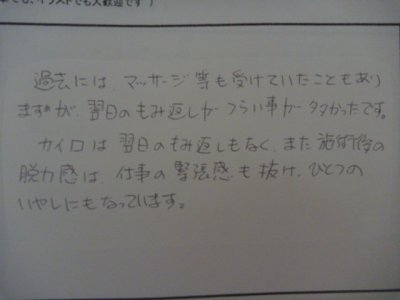 でも、イラストでも大歓迎です）
過去には、マッサージ等も受けていたこともあり
ますが、翌日のもみ返しが つらい事が多かったです。
カイロは 翌日のもみ返しもなく、また 施術後の
脱力感は、仕事の 緊張感も抜け、ひとつの
いやしにもなっています。